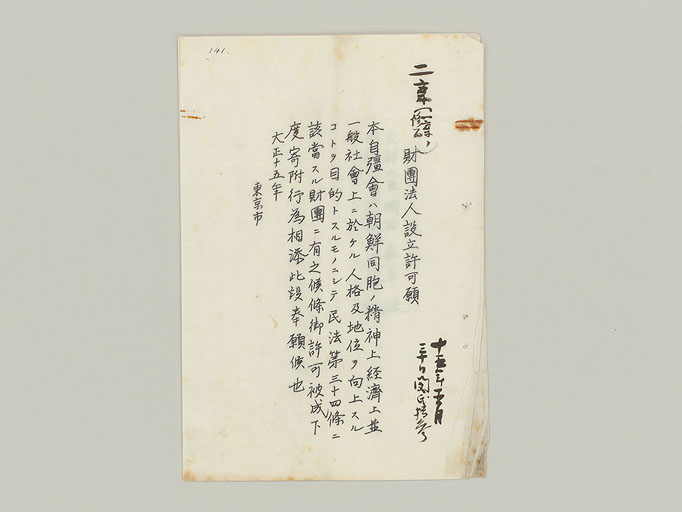 141.
財團法人設立許可願
本自彊會ハ朝鮮同胞ノ精神上経済上並
一般社會上ニ於ケル人格及地位ヲ向上スル
コトヲ目的トスルモノニシテ民法第三十四條ニ
該當スル財團ニ有之候條御許可被成下
度寄附行為相添此段奉願候也
大正十五年
東京市